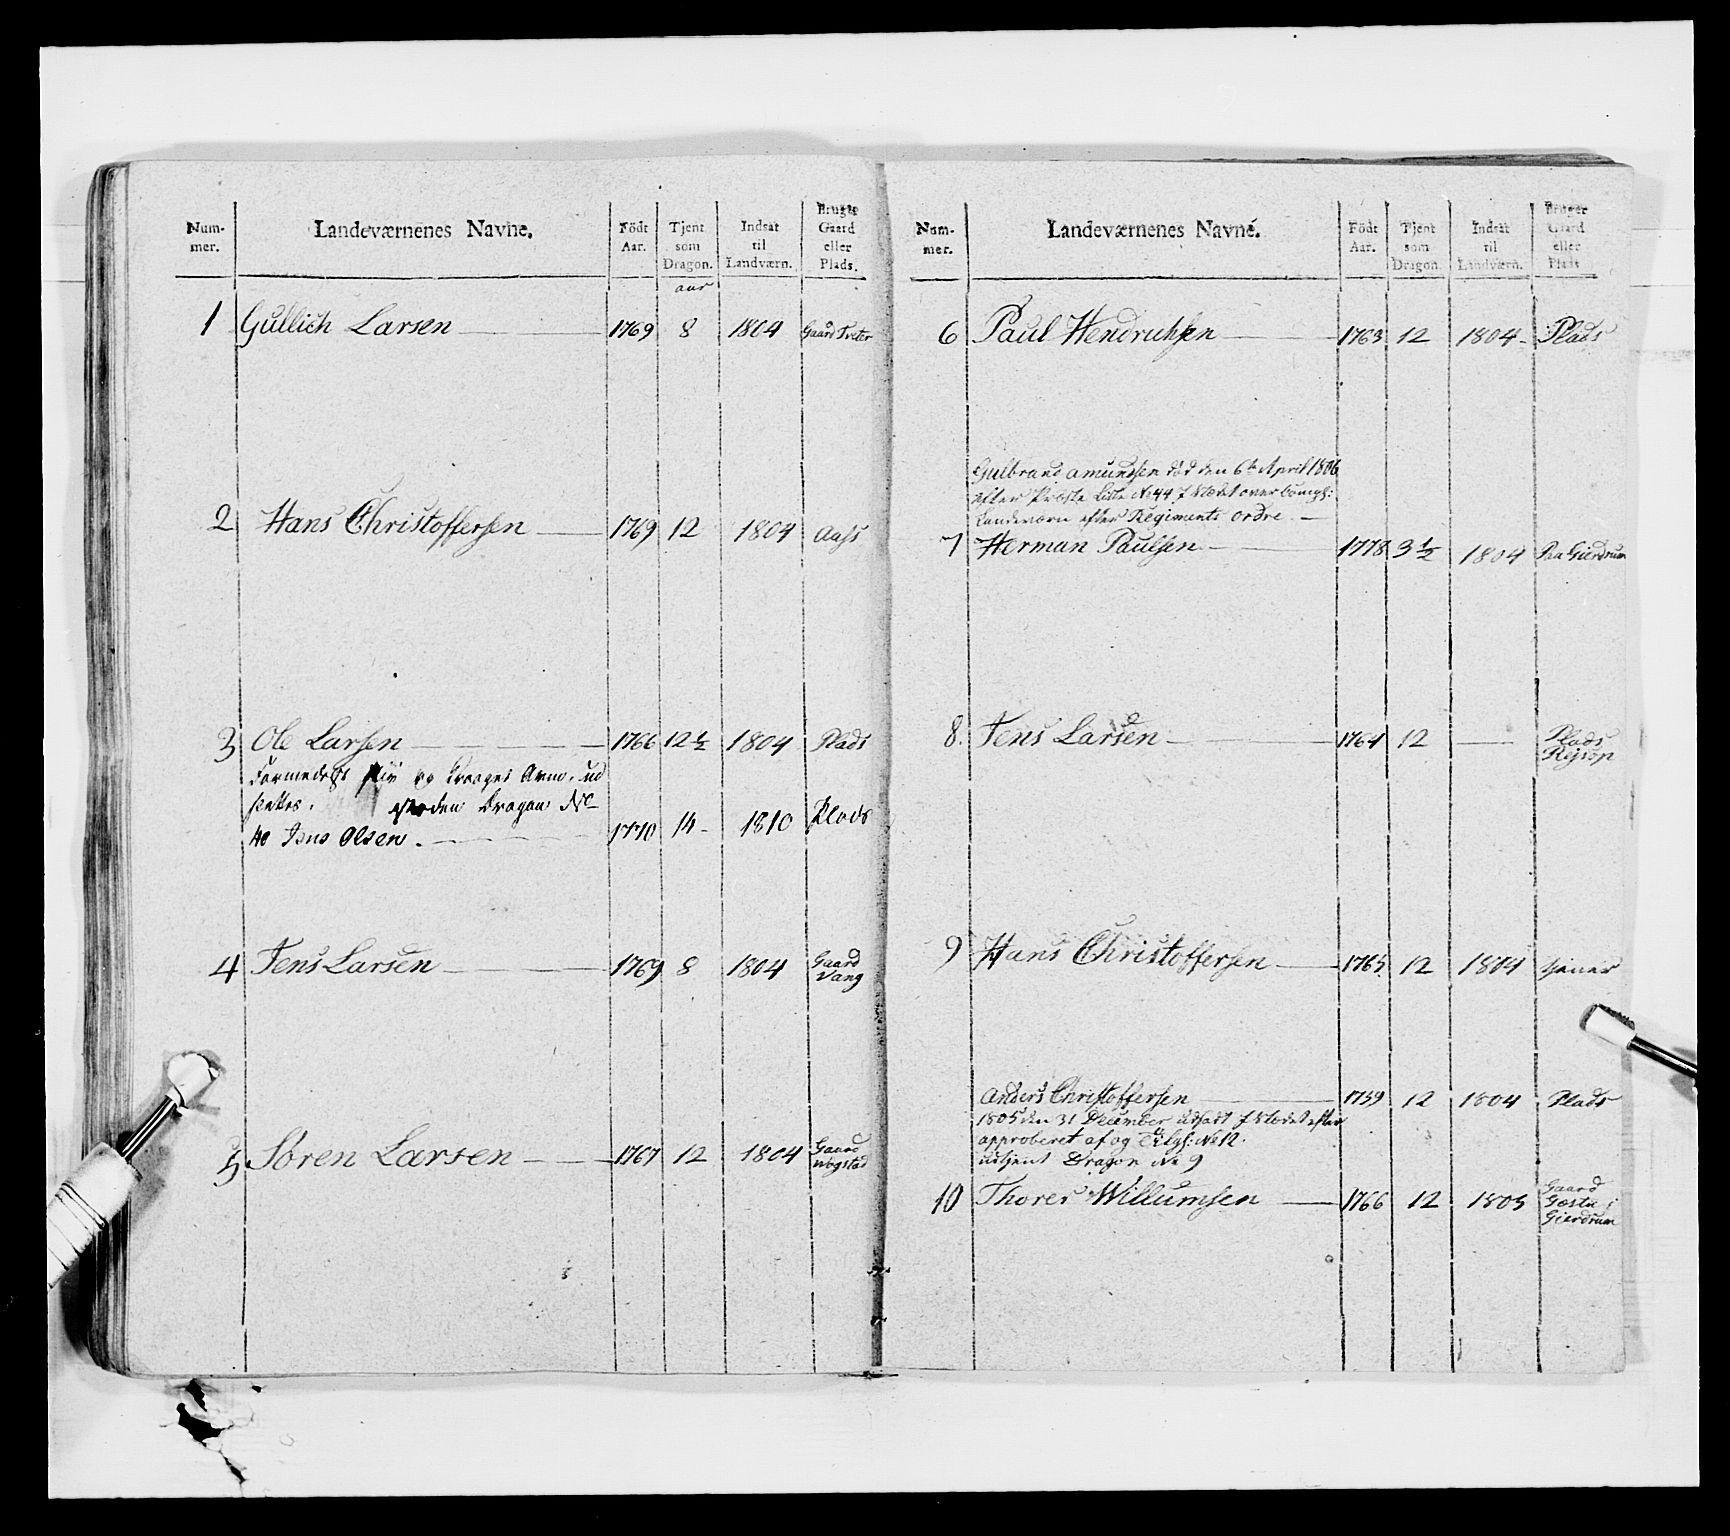 Num-
mer.
Landeværnenes Navne.
Födt
Aar.
Tjent
som
Dragon.
Indsat
til
Landværn.
Brugte
Gaard
eller
Plads.
aar
1 Gullich Larsen 1769 8 1804 Gaard Tveter
2 Hans Christoffersen 1769 12 1804 Aass
3 Ole Larsen 1766 12½ 1804 Plads
Formedelst og Arm, ud
settes. den Dragon No
40 Jens Olsen. 1770 14 1810 Plads
4 Jens Larsen 1769 8 1804 Gaard
Vang
5 Søren Larsen 1767 12 1804 Gaard
Nogstad
Num-
mer.
Landeværnenes Navne.
Födt
Aar.
Tjent
som
Dragon.
Indsat
til
Landværn.
Bruger
Gaard
eller
Plads
6 Paul Hendrichsen 1763 12 1804 Plads
Gulbrand amundsen död den 6te April 1806
efter Liste No 44 J Stædet over
Landeværn efter Regiments ordre.
7 Herman Paulsen 1778 3½ 1804 Paa Gierdrum
8. Jens Larsen 1764 12 — Plads
9 Hans Christoffersen 1765 12 1804 tiener
Anders Christoffersen 1759 12 1804 Plads
1805 den 31 December udsadt J Stædet efter
approberet af og No 12.
udtjent Dragon No 9
10 Thorer Willumsen 1766 12 1805 Gaard
i
Gierdrum